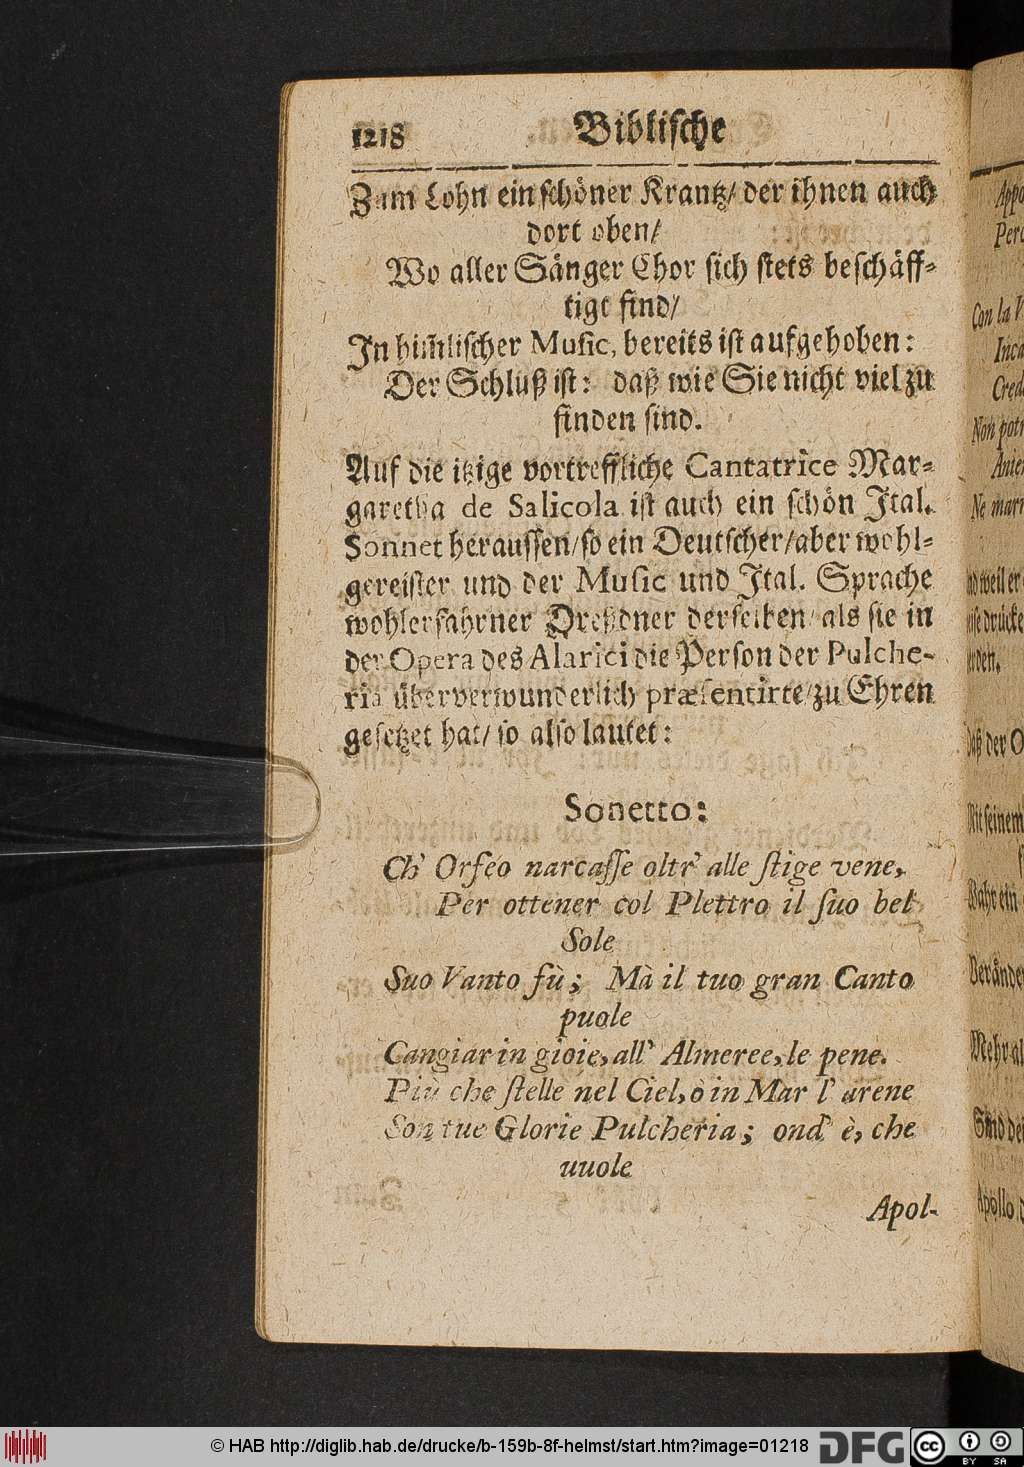 1218 Biblische
Zum Lohn ein schöner Krantz/ der ihnen auch
dort oben/
Wo aller Sänger Chor sich stets beschäff-
tigt find/
In him̃lischer Music, bereits ist aufgehoben:
Der Schluß ist: daß wie Sie nicht viel zu
finden sind.
Auf die itzige vortreffliche Cantatrice Mar-
garetha de Salicola ist auch ein schön Ital.
Sonnet heraussen/ so ein Deutscher/ aber wohl-
gereister und der Music und Ital. Sprache
wohlerfahrner Dreßdner derselben/ als sie in
der Opera des Alarici die Person der Pulche-
ria überverwunderlich præsentirte/ zu Ehren
gesetzet hat/ so also lautet:
Sonetto:
Ch' Orfeo narcasse oltr' alle stige vene,
Per ottener col Plettro il suo bel
Sole
Suo Vanto fù; Mà il tuo gran Canto
puole
Cangiar in gioie, all' Almeree, le pene.
Più che stelle nel Ciel, ò in Mar l' arene
Son tue Glorie Pulcheria; ond' è, che
uuole
Apol-
Con la
Non
Ne
daß der
Mit seinem
Wahr ein
Mehr al
Sind
Apollo
© HAB http://diglib.hab.de/drucke/b-159b-8f-helmst/start.htm?image=01218
DFG
cc
BY SA